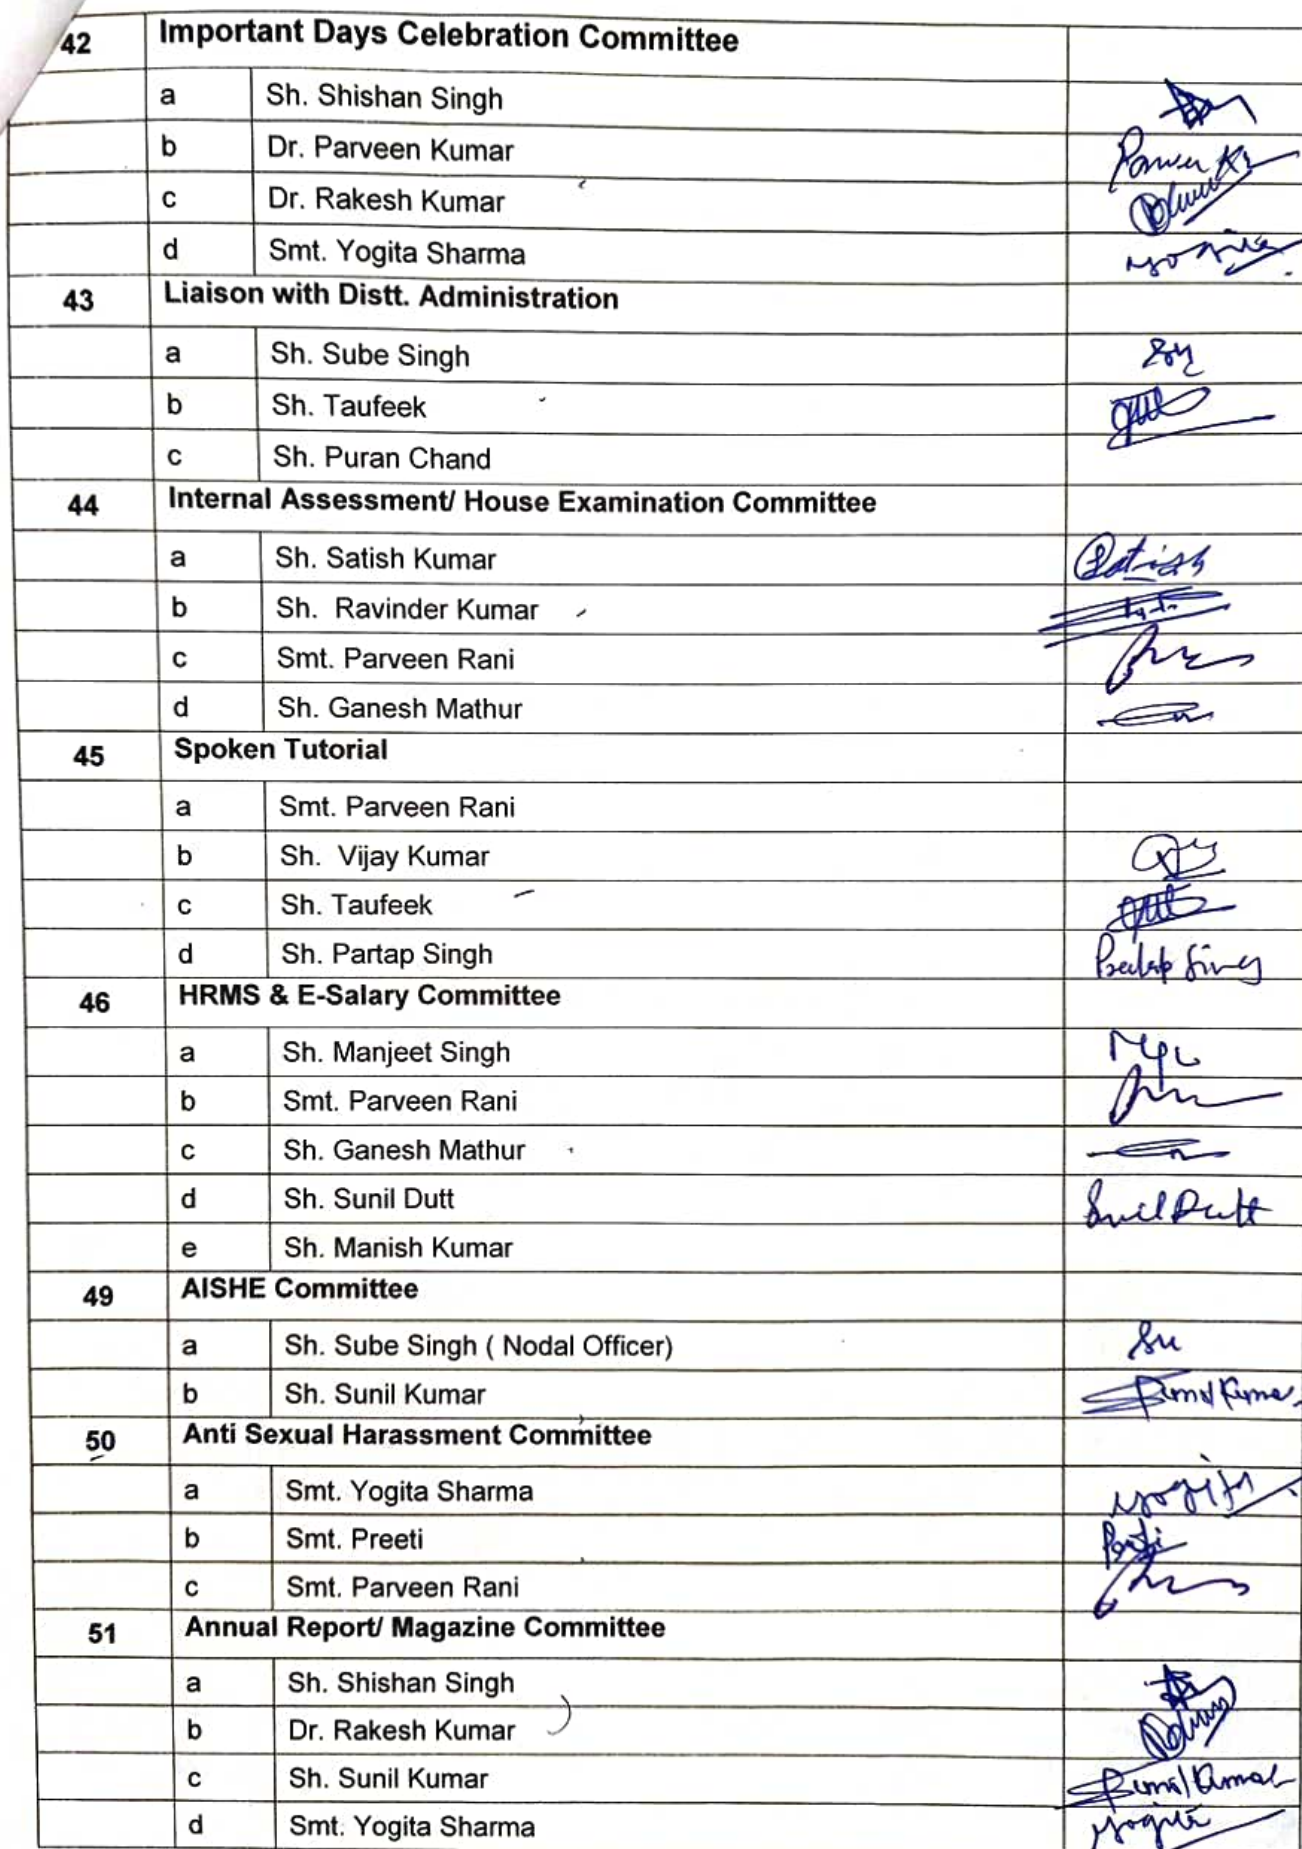 42 Important Days Celebration Committee
a Sh. Shishan Singh
b Dr. Parveen Kumar
c Dr. Rakesh Kumar
d Smt. Yogita Sharma
43 Liaison with Distt. Administration
a Sh. Sube Singh
b Sh. Taufeek
c Sh. Puran Chand
44 Internal Assessment/ House Examination Committee
a Sh. Satish Kumar Satish
b Sh. Ravinder Kumar
c Smt. Parveen Rani
d Sh. Ganesh Mathur
45 Spoken Tutorial
a Smt. Parveen Rani
b Sh. Vijay Kumar
c Sh. Taufeek
d Sh. Partap Singh
46 HRMS & E-Salary Committee
a Sh. Manjeet Singh
b Smt. Parveen Rani
c Sh. Ganesh Mathur
d Sh. Sunil Dutt Sunil Dutt
e Sh. Manish Kumar
49 AISHE Committee
a Sh. Sube Singh ( Nodal Officer)
b Sh. Sunil Kumar
50 Anti Sexual Harassment Committee
a Smt. Yogita Sharma Yogita
b Smt. Preeti
c Smt. Parveen Rani
51 Annual Report/ Magazine Committee
a Sh. Shishan Singh
b Dr. Rakesh Kumar
c Sh. Sunil Kumar
d Smt. Yogita Sharma